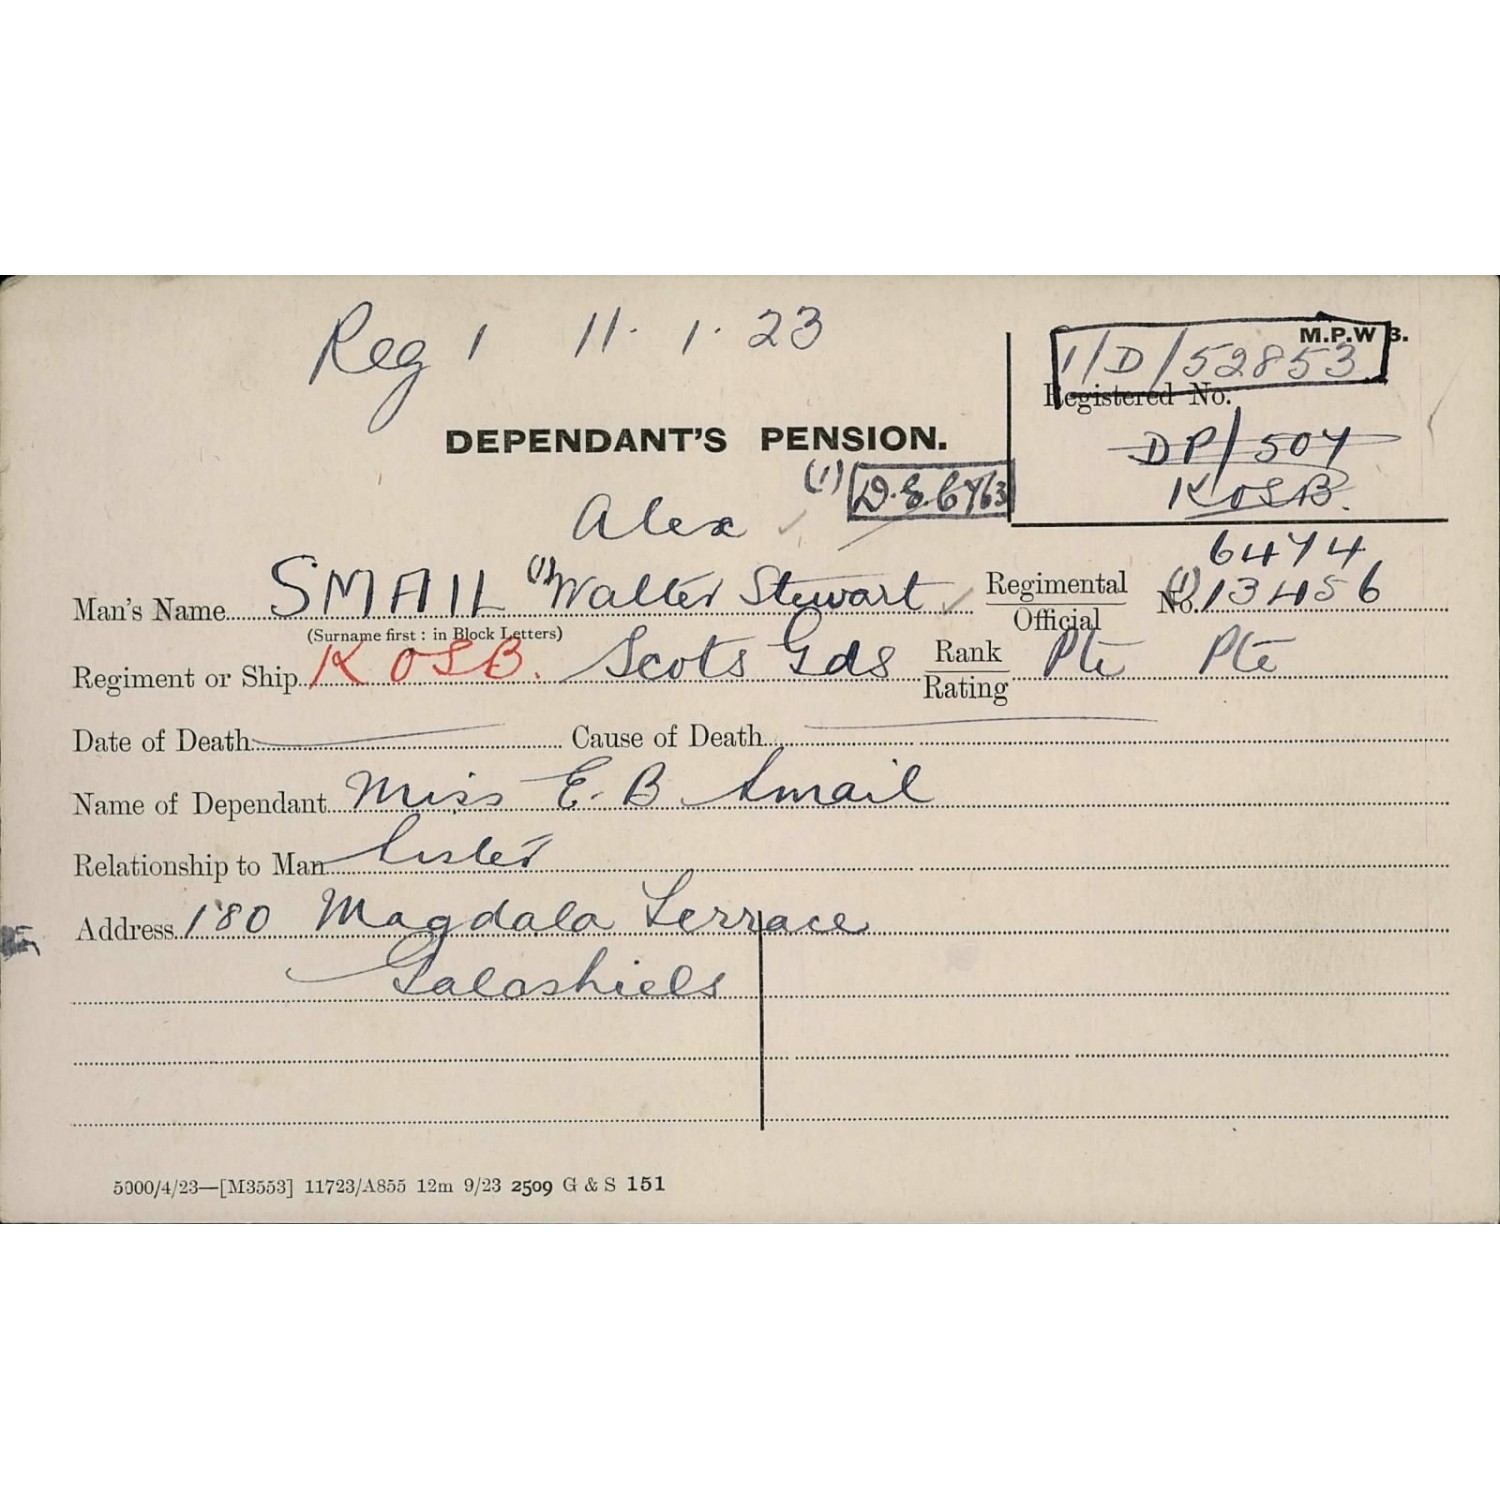 Reg 1 11. 1. 23
M.P.W 3.
1/D/52853
Registered No.
DP/504
KOSB.
DEPENDANT'S PENSION.
(1)
Alex
6474
Man's Name SMAIL (1) Walter Stewart Regimental/Official No. (1) 13456
(Surname first : in Block Letters)
Regiment or Ship KOSB. Scots Gds Rank/Rating Pte Pte
Date of Death Cause of Death
Name of Dependant Miss E. B Smail
Relationship to Man Sister
Address 180 Magdala Terrace
Galashiels
5000/4/23—[M3553] 11723/A855 12m 9/23 2509 G & S 151